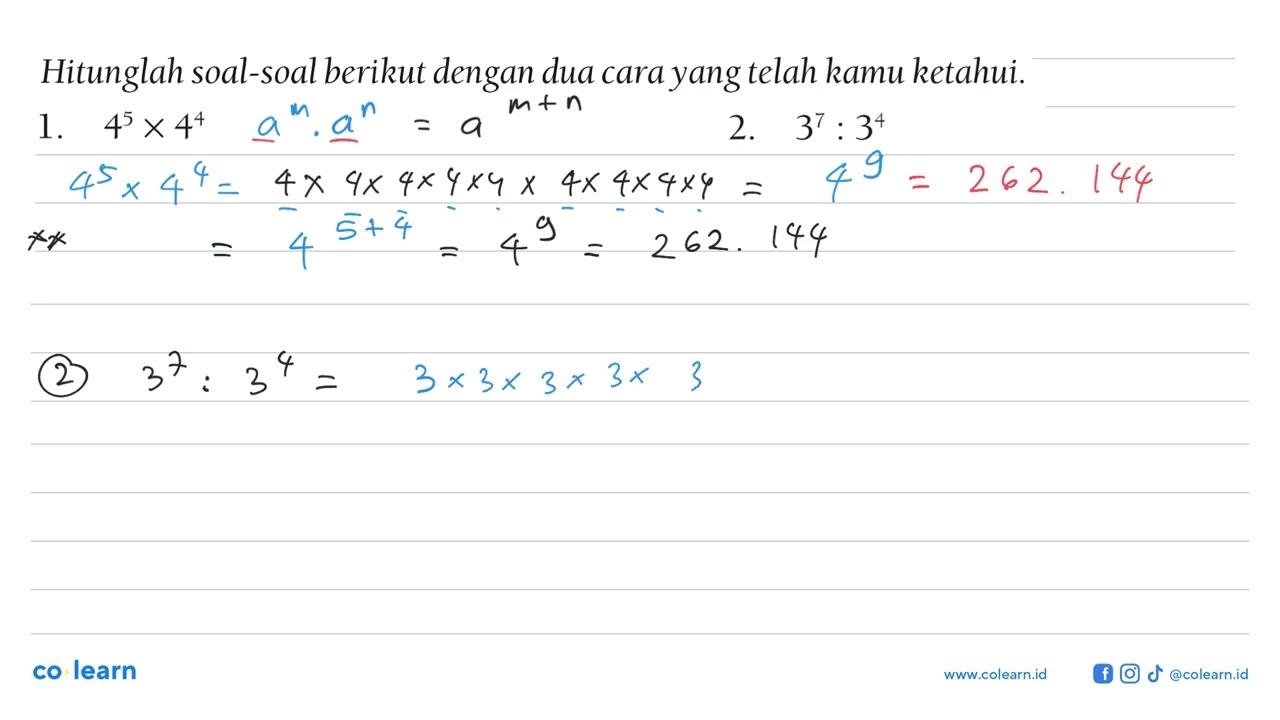 Hitunglah soal-soal berikut dengan dua cara yang telah kamu ketahui.
1. 4⁵ × 4⁴ aᵐ . aⁿ = aᵐ⁺ⁿ 2. 3⁷ : 3⁴
4⁵ × 4⁴ = 4 × 4 × 4 × 4 × 4 × 4 × 4 × 4 × 4 = 4⁹ = 262.144
** = 4⁵⁺⁴ = 4⁹ = 262.144
② 3⁷ : 3⁴ = 3 × 3 × 3 × 3 × 3
co learn
www.colearn.id @colearn.id